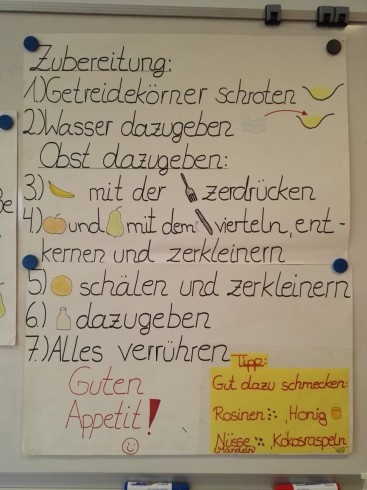 Zubereitung:
1.)Getreidekörner schroten
2.)Wasser dazugeben
Obst dazugeben:
3.) mit der zerdrücken
4.) und mit dem vierteln, ent-
kernen und zerkleinern
5.) schälen und zerkleinern
6.) dazugeben
7.)Alles verrühren
Guten
Appetit!
Tipp:
Gut dazu schmecken:
Rosinen , Honig
Nüsse , Kokosraspeln
Mandeln